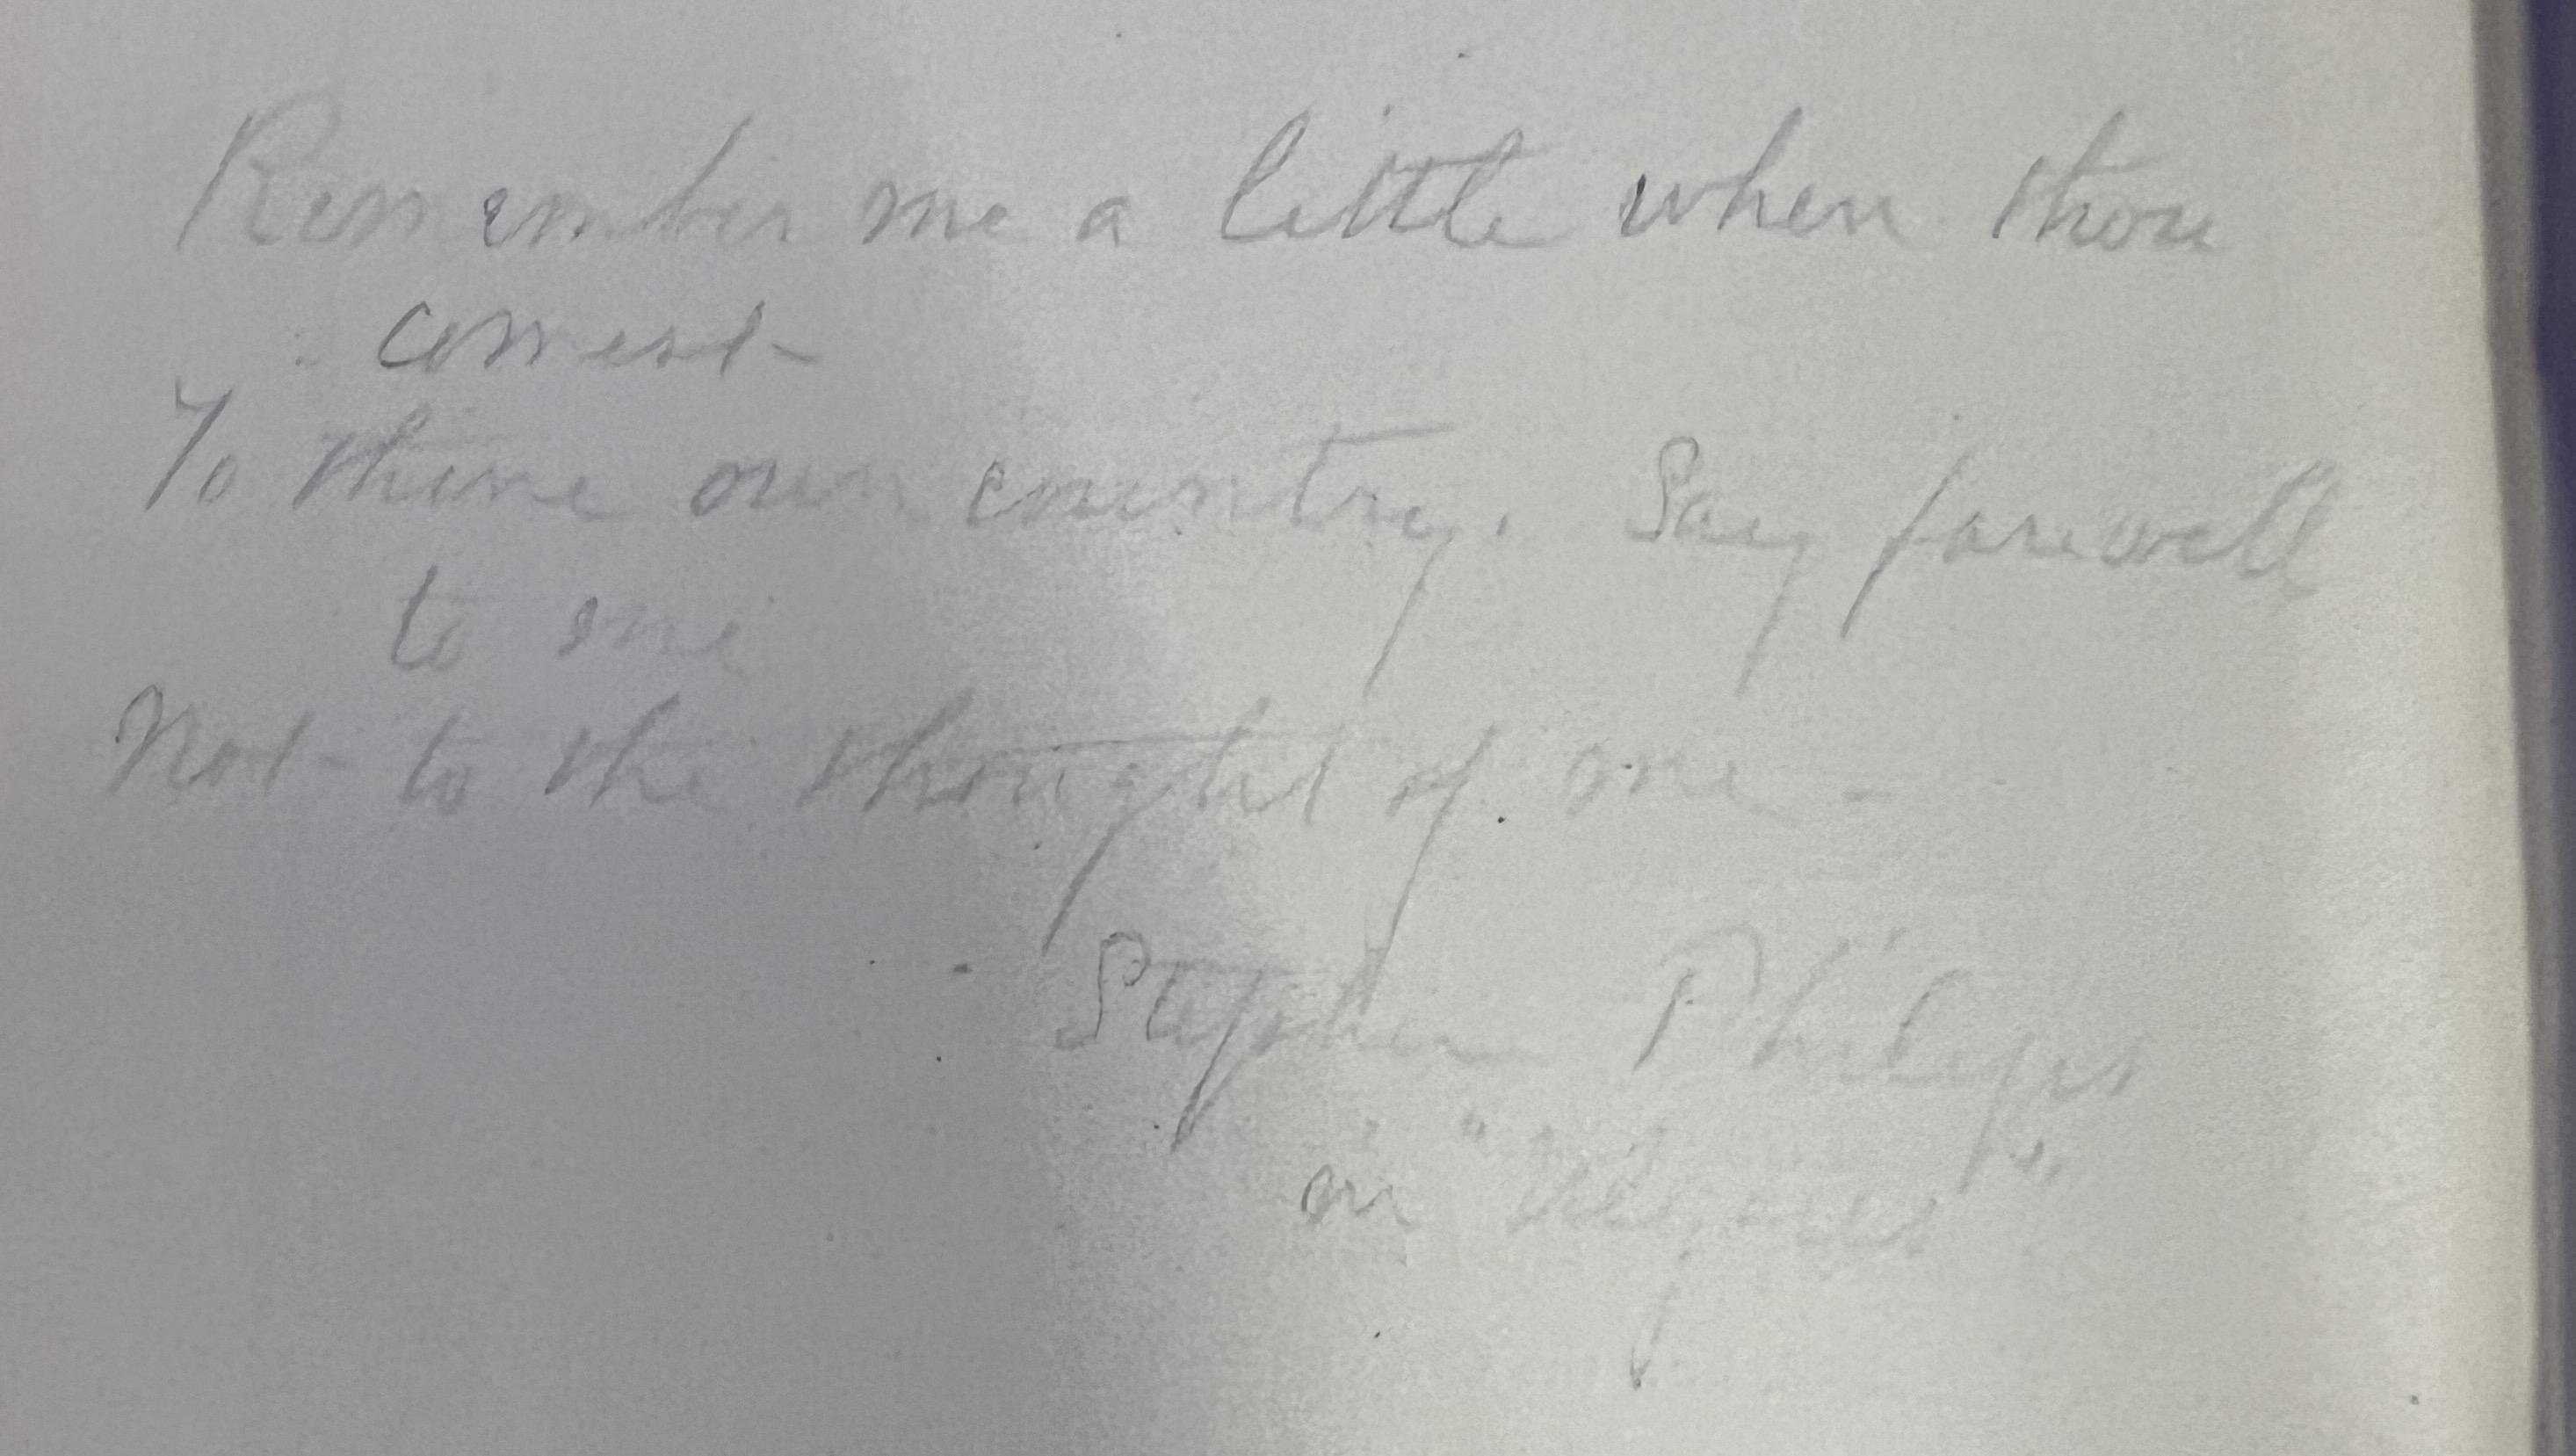 Remember me a little when thou
comest
To thine own country. Say farewell
to me
Not to the thought of me -
Stephen Philips
in "Ulysses"